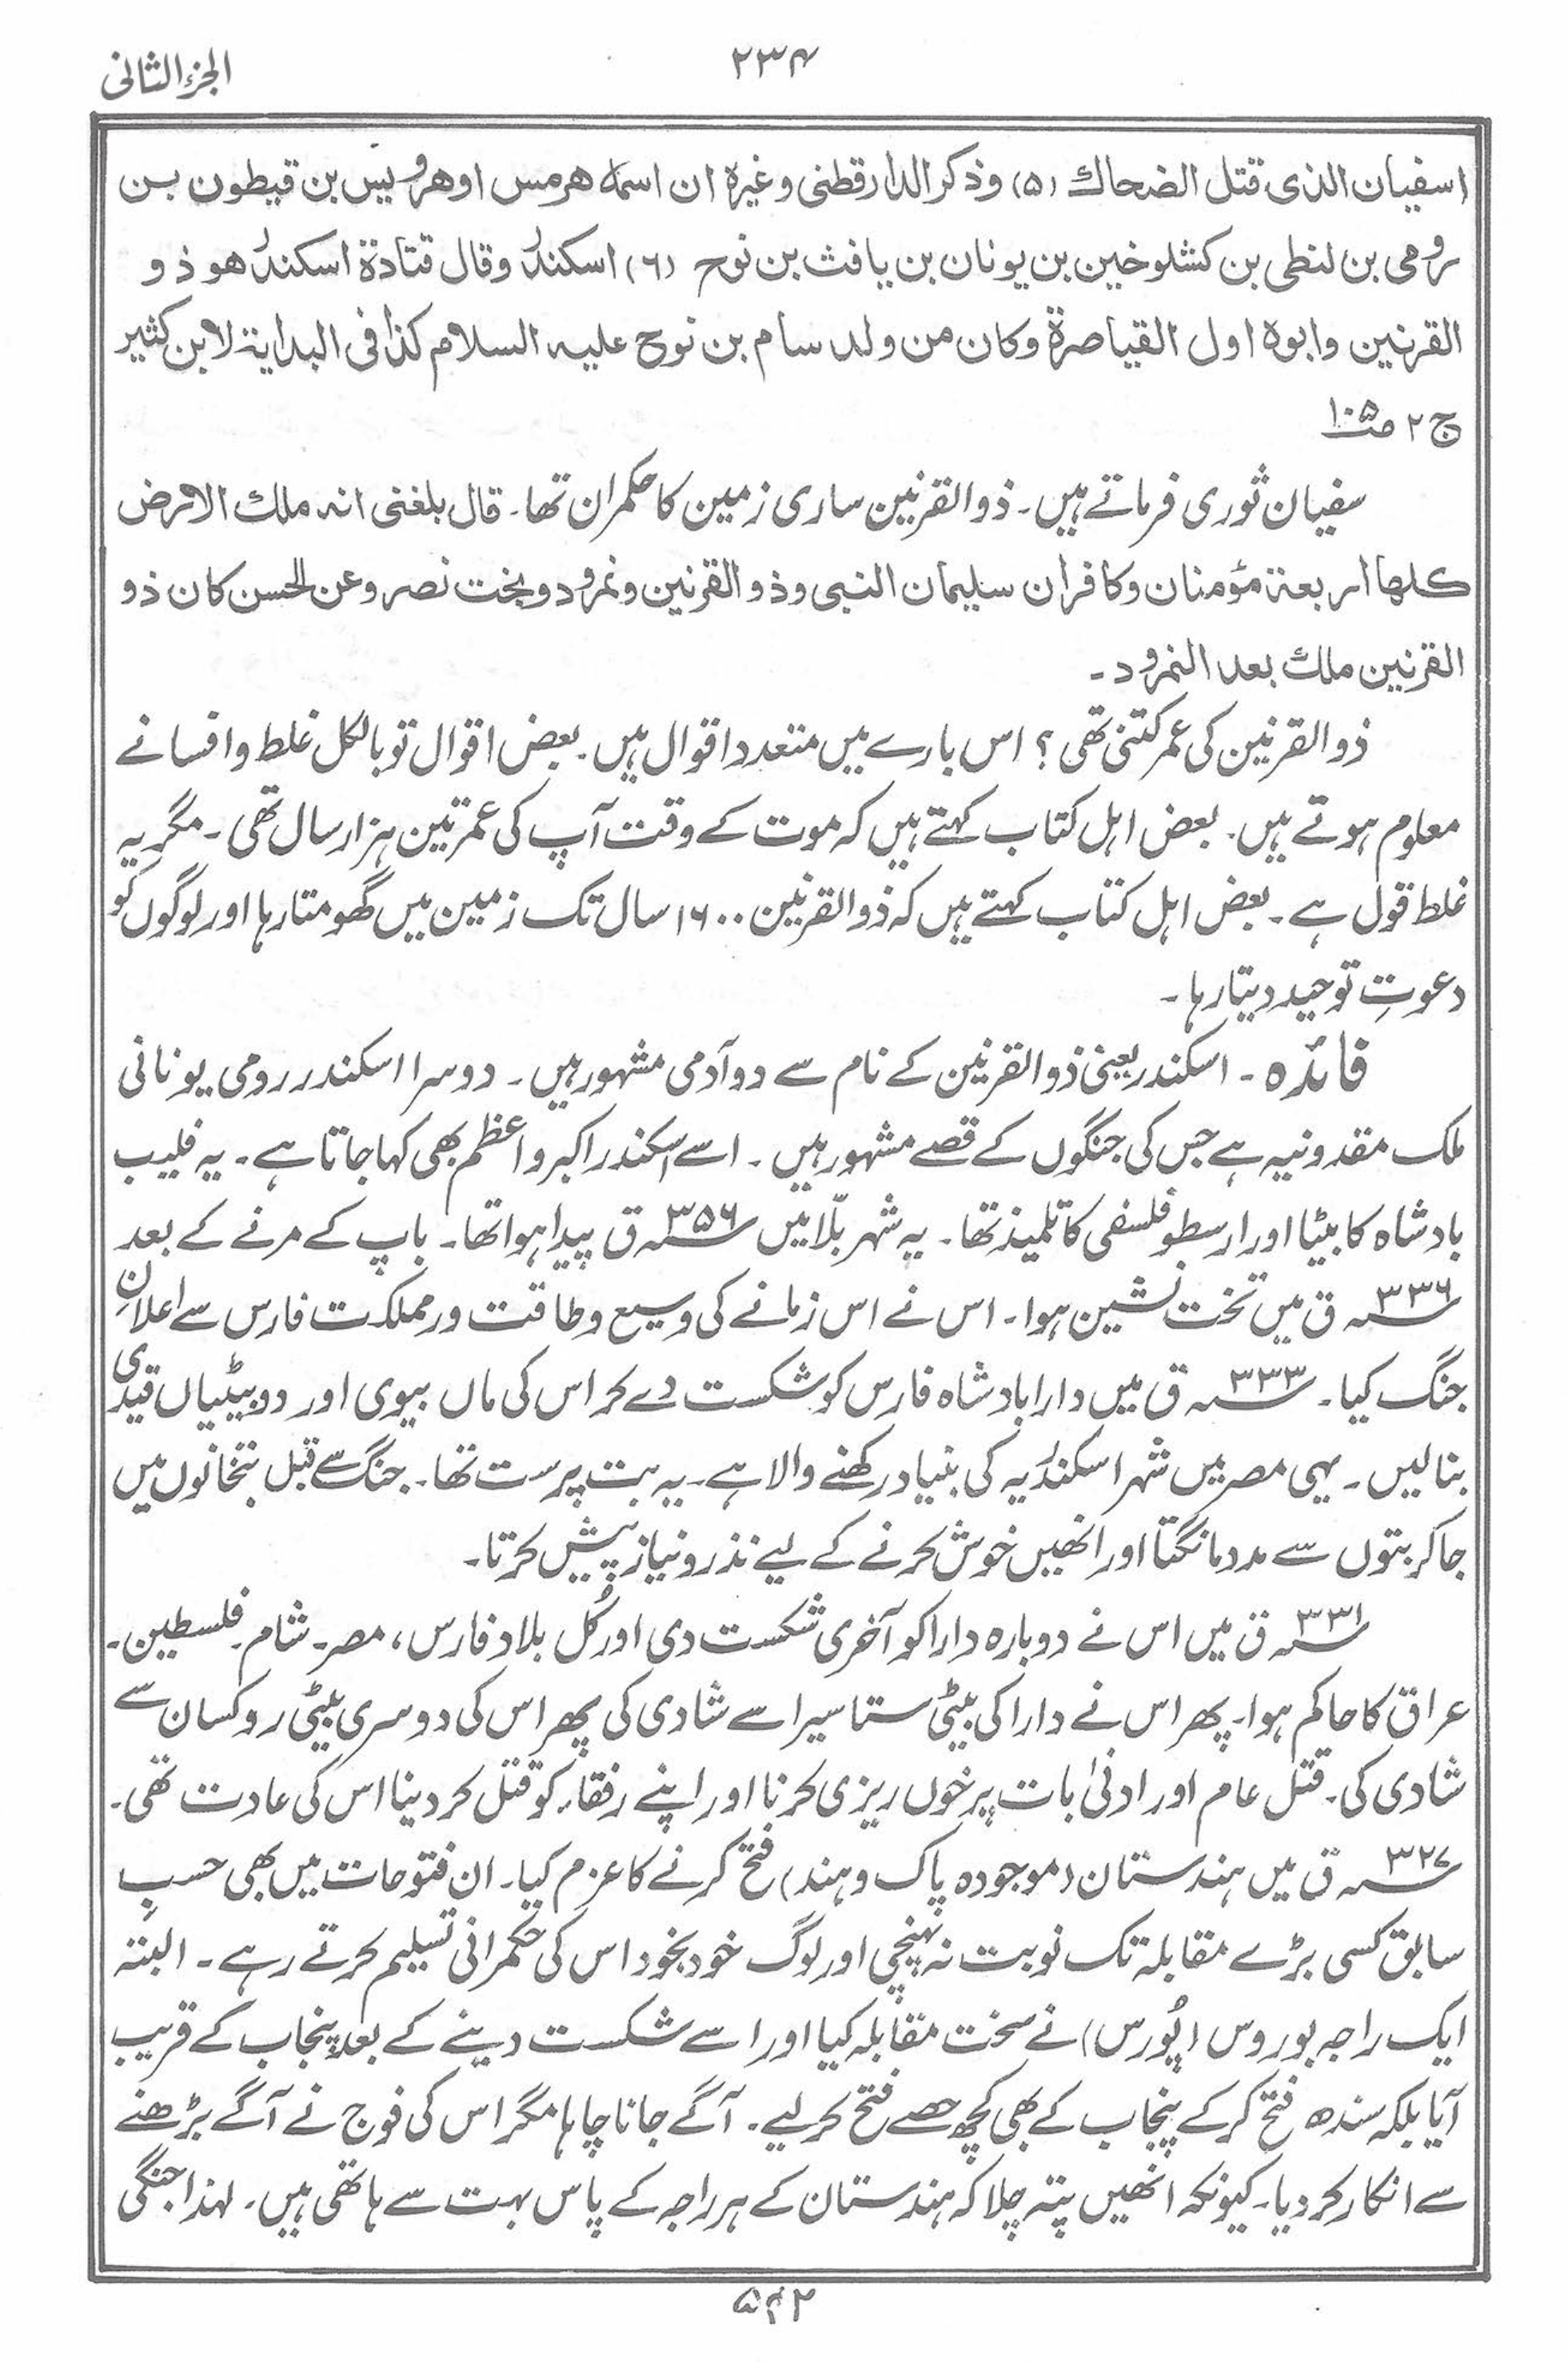 ۲۳۴
الجزء الثانی
اسفیان الذی قتل الضحاک (۵) وذکر الدارقطنی وغیرہ ان اسمہ ھرمس اوھرویس بن قیطون بن
رومی بن لنطی بن کشلوخین بن یونان بن یافث بن نوح (۶) اسکندر وقال قتادۃ اسکندر ھو ذو
القرنین وابوہ اول القیاصرۃ وکان من ولد سام بن نوح علیہ السلام کذا فی البدایۃ لابن کثیر
ج ۲ ص ۱۰۵
سفیان ثوری فرماتے ہیں۔ ذوالقرنین ساری زمین کا حکمران تھا۔ قال بلغنی انہ ملک الارض
کلھا اربعۃ مؤمنان وکافران سلیمان النبی وذوالقرنین ونمرود وبخت نصر وعن الحسن کان ذو
القرنین ملک بعد النمرود۔
ذوالقرنین کی عمر کتنی تھی؟ اس بارے میں متعدد اقوال ہیں۔ بعض اقوال تو بالکل غلط و افسانے
معلوم ہوتے ہیں۔ بعض اہل کتاب کہتے ہیں کہ موت کے وقت آپ کی عمر تین ہزار سال تھی۔ مگر یہ
غلط قول ہے۔ بعض اہل کتاب کہتے ہیں کہ ذوالقرنین ۱۶۰۰ سال تک زمین میں گھومتا رہا اور لوگوں کو
دعوتِ توحید دیتا رہا۔
فائدہ۔ اسکندر یعنی ذوالقرنین کے نام سے دو آدمی مشہور ہیں۔ دوسرا اسکندر رومی یونانی
ملک مقدونیہ ہے جس کی جنگوں کے قصے مشہور ہیں۔ اسے اسکندر اکبر و اعظم بھی کہا جاتا ہے۔ یہ فلیپ
بادشاہ کا بیٹا اور ارسطو فلسفی کا تلمیذ تھا۔ یہ شہر بلّا میں ۳۵۶؁ ق پیدا ہوا تھا۔ باپ کے مرنے کے بعد
۳۳۶؁ ق میں تخت نشین ہوا۔ اس نے اس زمانے کی وسیع و طاقت ور مملکت فارس سے اعلانِ
جنگ کیا۔ ۳۳۳؁ ق میں دارا بادشاہ فارس کو شکست دے کر اس کی ماں بیوی اور دو بیٹیاں قیدی
بنا لیں۔ یہی مصر میں شہر اسکندریہ کی بنیاد رکھنے والا ہے۔ یہ بت پرست تھا۔ جنگ سے قبل بتخانوں میں
جا کر بتوں سے مدد مانگتا اور انھیں خوش کرنے کے لیے نذر و نیاز پیش کرتا۔
۳۳۱؁ ق میں اس نے دوبارہ دارا کو آخری شکست دی اور کُل بلاد فارس، مصر۔ شام۔ فلسطین۔
عراق کا حاکم ہوا۔ پھر اس نے دارا کی بیٹی ستاسیرا سے شادی کی پھر اس کی دوسری بیٹی روکسان سے
شادی کی۔ قتل عام اور ادنیٰ بات پر خوں ریزی کرنا اور اپنے رفقاء کو قتل کر دینا اس کی عادت تھی۔
۳۲۷؁ ق میں ہندستان (موجودہ پاک و ہند) فتح کرنے کا عزم کیا۔ ان فتوحات میں بھی حسبِ
سابق کسی بڑے مقابلہ تک نوبت نہ پہنچی اور لوگ خود بخود اس کی حکمرانی تسلیم کرتے رہے۔ البتہ
ایک راجہ بوروس (پُورس) نے سخت مقابلہ کیا اور اسے شکست دینے کے بعد پنجاب کے قریب
آیا بلکہ سندھ فتح کر کے پنجاب کے بھی کچھ حصے فتح کر لیے۔ آگے جانا چاہا مگر اس کی فوج نے آگے بڑھنے
سے انکار کر دیا۔ کیونکہ انھیں پتہ چلا کہ ہندستان کے ہر راجہ کے پاس بہت سے ہاتھی ہیں۔ لہذا جنگی
۵۴۲